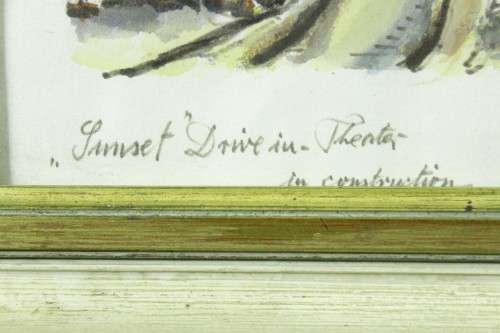 „Sunset" Drive in - Theater
in construction